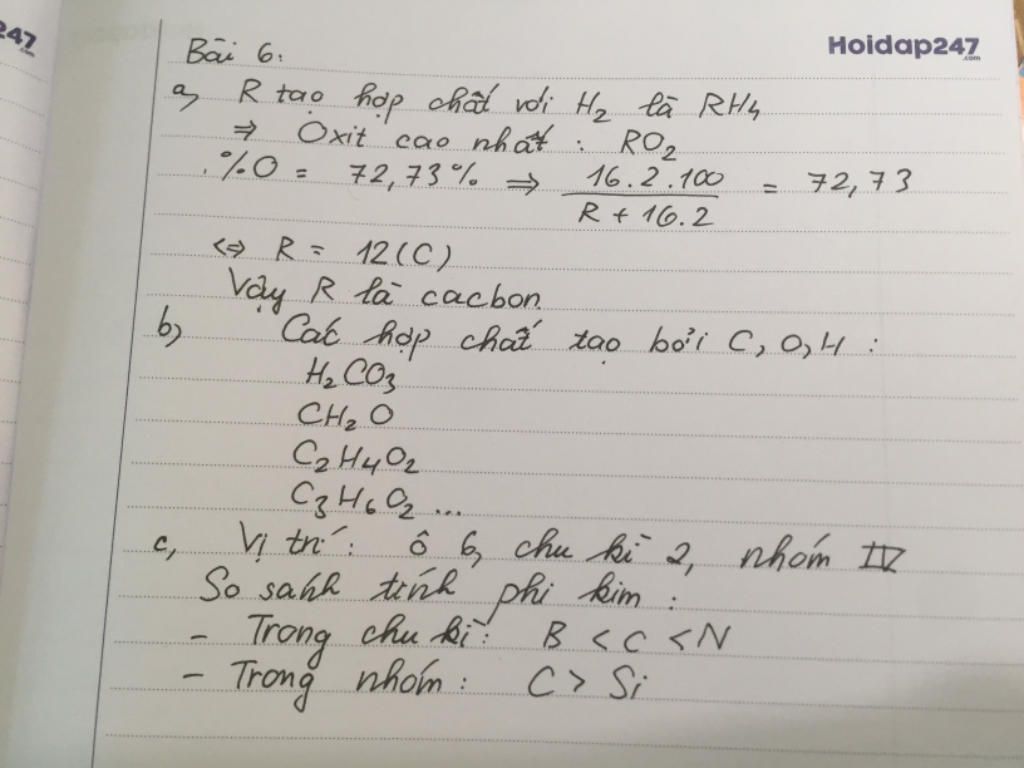 247
.com
Hoidap247
.com
Bài 6:
a, R tạo hợp chất với H₂ là RH₄
⇒ Oxit cao nhất : RO₂
%O = 72,73% ⇒ 16.2.100 / R + 16.2 = 72,73
⇔ R = 12 (C)
Vậy R là cacbon.
b, Các hợp chất tạo bởi C, O, H :
H₂CO₃
CH₂O
C₂H₄O₂
C₃H₆O₂ ...
c, Vị trí : ô 6, chu kì 2, nhóm IV
So sánh tính phi kim :
- Trong chu kì : B < C < N
- Trong nhóm : C > Si